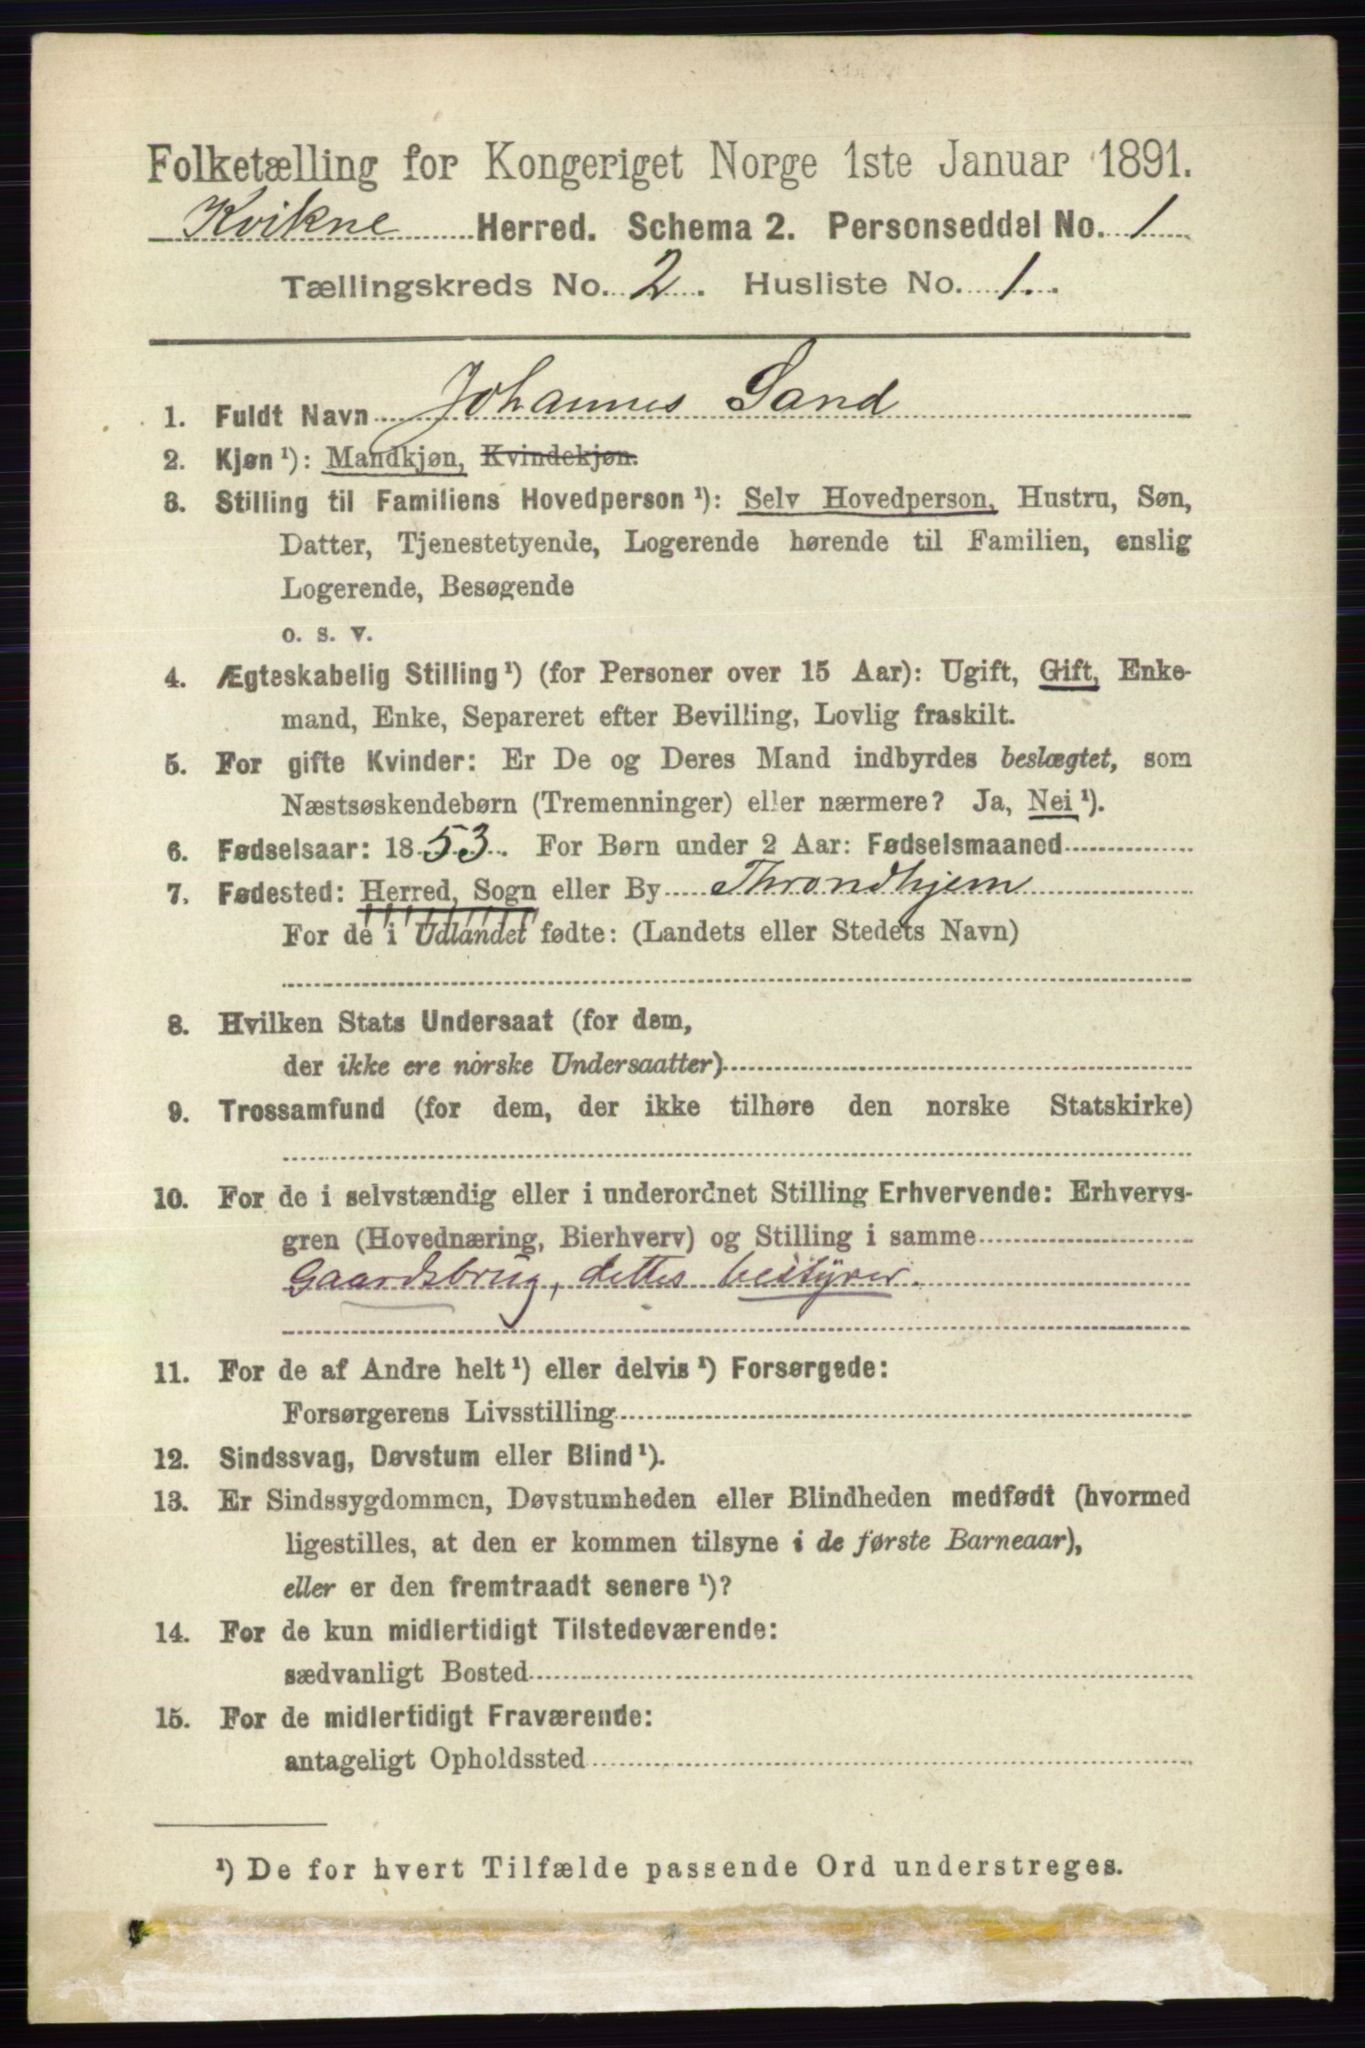 Folketælling for Kongeriget Norge 1ste Januar 1891.
Kvikne Herred. Schema 2. Personseddel No. 1
Tællingskreds No. 2. Husliste No. 1.
1. Fuldt Navn Johannes Sand
2. Kjøn¹): Mandkjøn, Kvindekjøn.
3. Stilling til Familiens Hovedperson¹): Selv Hovedperson, Hustru, Søn,
Datter, Tjenestetyende, Logerende hørende til Familien, enslig
Logerende, Besøgende
o. s. v.
4. Ægteskabelig Stilling¹) (for Personer over 15 Aar): Ugift, Gift, Enke-
mand, Enke, Separeret efter Bevilling, Lovlig fraskilt.
5. For gifte Kvinder: Er De og Deres Mand indbyrdes beslægtet, som
Næstsøskendebørn (Tremenninger) eller nærmere? Ja, Nei¹).
6. Fødselsaar: 1853. For Børn under 2 Aar: Fødselsmaaned
7. Fødested: Herred, Sogn eller By Throndhjem
For de i Udlandet fødte: (Landets eller Stedets Navn)
8. Hvilken Stats Undersaat (for dem,
der ikke ere norske Undersaatter)
9. Trossamfund (for dem, der ikke tilhøre den norske Statskirke)
10. For de i selvstændig eller i underordnet Stilling Erhvervende: Erhvervs-
gren (Hovednæring, Bierhverv) og Stilling i samme
Gaardsbrug, dettes bestyrer.
11. For de af Andre helt¹) eller delvis¹) Forsørgede:
Forsørgerens Livsstilling
12. Sindssvag, Døvstum eller Blind¹).
13. Er Sindssygdommen, Døvstumheden eller Blindheden medfødt (hvormed
ligestilles, at den er kommen tilsyne i de første Barneaar),
eller er den fremtraadt senere¹)?
14. For de kun midlertidigt Tilstedeværende:
sædvanligt Bosted
15. For de midlertidigt Fraværende:
antageligt Opholdssted
¹) De for hvert Tilfælde passende Ord understreges.